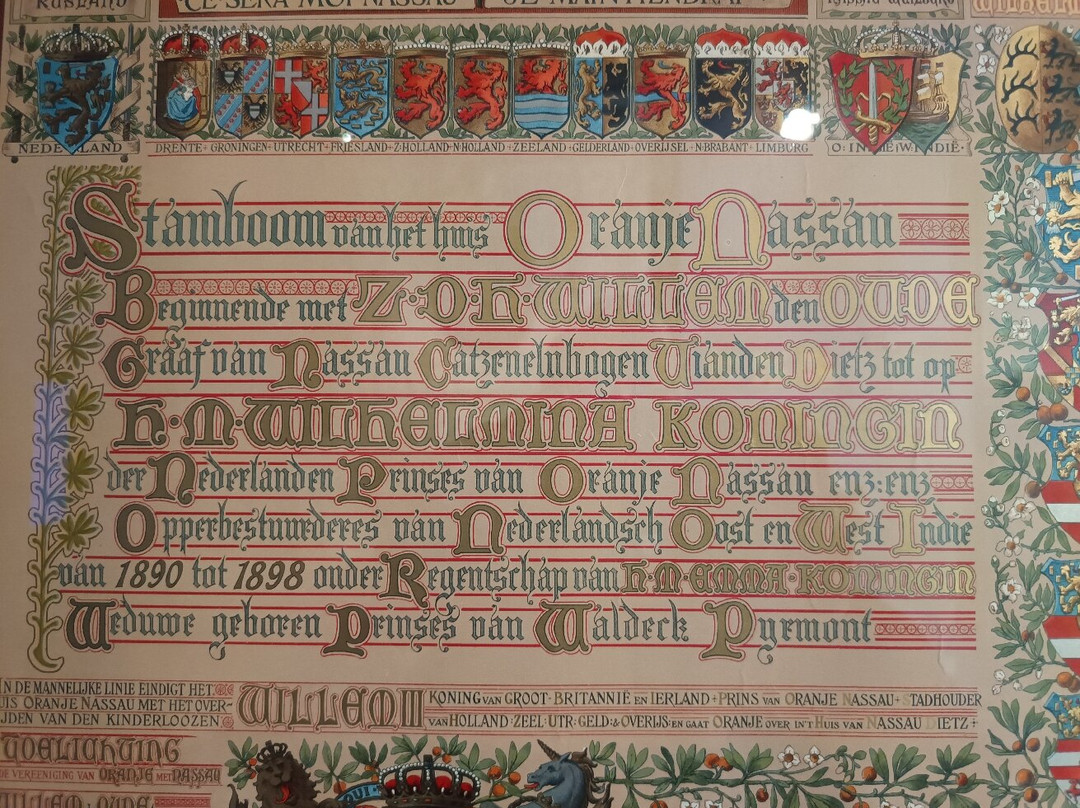 RUSLAND
CE SERA MOI NASSAU JE MAINTIENDRAI
NEDERLAND
DRENTE · GRONINGEN · UTRECHT · FRIESLAND · Z:HOLLAND · N:HOLLAND · ZEELAND · GELDERLAND · OVERIJSEL · N:BRABANT · LIMBURG
Stamboom van het huis Oranje Nassau
Beginnende met Z·D·H·WILLEM den OUDE
Graaf van Nassau Catzenelnbogen Vianden Dietz tot op
H·M·WILHELMINA KONINGIN
der Nederlanden Prinses van Oranje Nassau enz:enz
Opperbestuurderes van Nederlandsch Oost en West Indie
van 1890 tot 1898 onder Regentschap van H·M·EMMA·KONINGIN
Weduwe geboren Prinses van Waldeck Pyrmont
IN DE MANNELIJKE LINIE EINDIGT HET
HUIS ORANJE NASSAU MET HET OVER-
LIJDEN VAN DEN KINDERLOOZEN
WILLEM III
KONING VAN GROOT-BRITANNIË EN IERLAND + PRINS VAN ORANJE NASSAU + STADHOUDER
VAN HOLLAND · ZEEL · UTR · GELD · & OVERIJS: EN GAAT ORANJE OVER IN'T HUIS VAN NASSAU DIETZ +
TOELICHTING
DE VEREENIGING VAN ORANJE MET NASSAU
WILLEM · OUDE
QUI